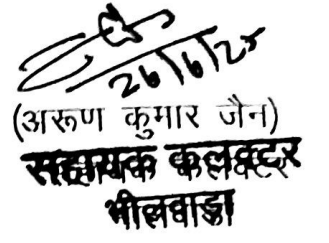 26/6/25
(अरूण कुमार जैन)
सहायक कलक्टर
भीलवाड़ा